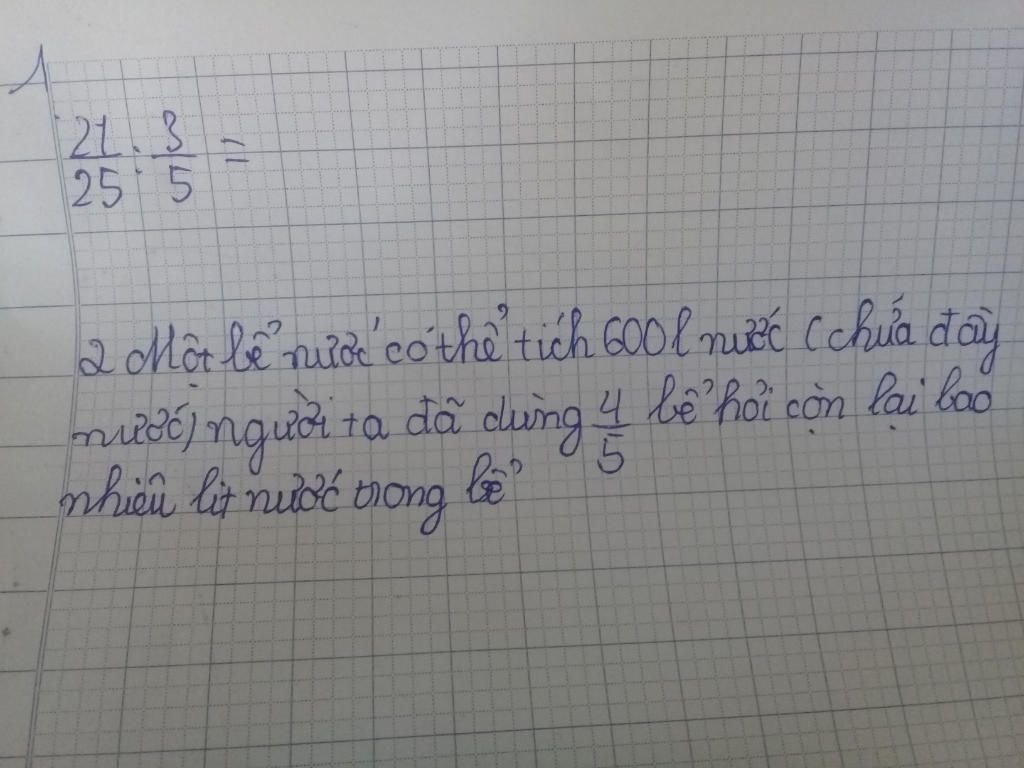 1
21/25 : 3/5 =
2 Một bể nước có thể tích 600l nước (chứa đầy
nước) người ta đã dùng 4/5 bể hỏi còn lại bao
nhiêu lít nước trong bể